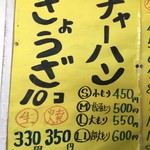 チャーハン
Ⓢ小もり450円
Ⓜ普通もり500円
Ⓛ大もり550円
600円
ぎょうざ
10コ
生 焼
330 350円